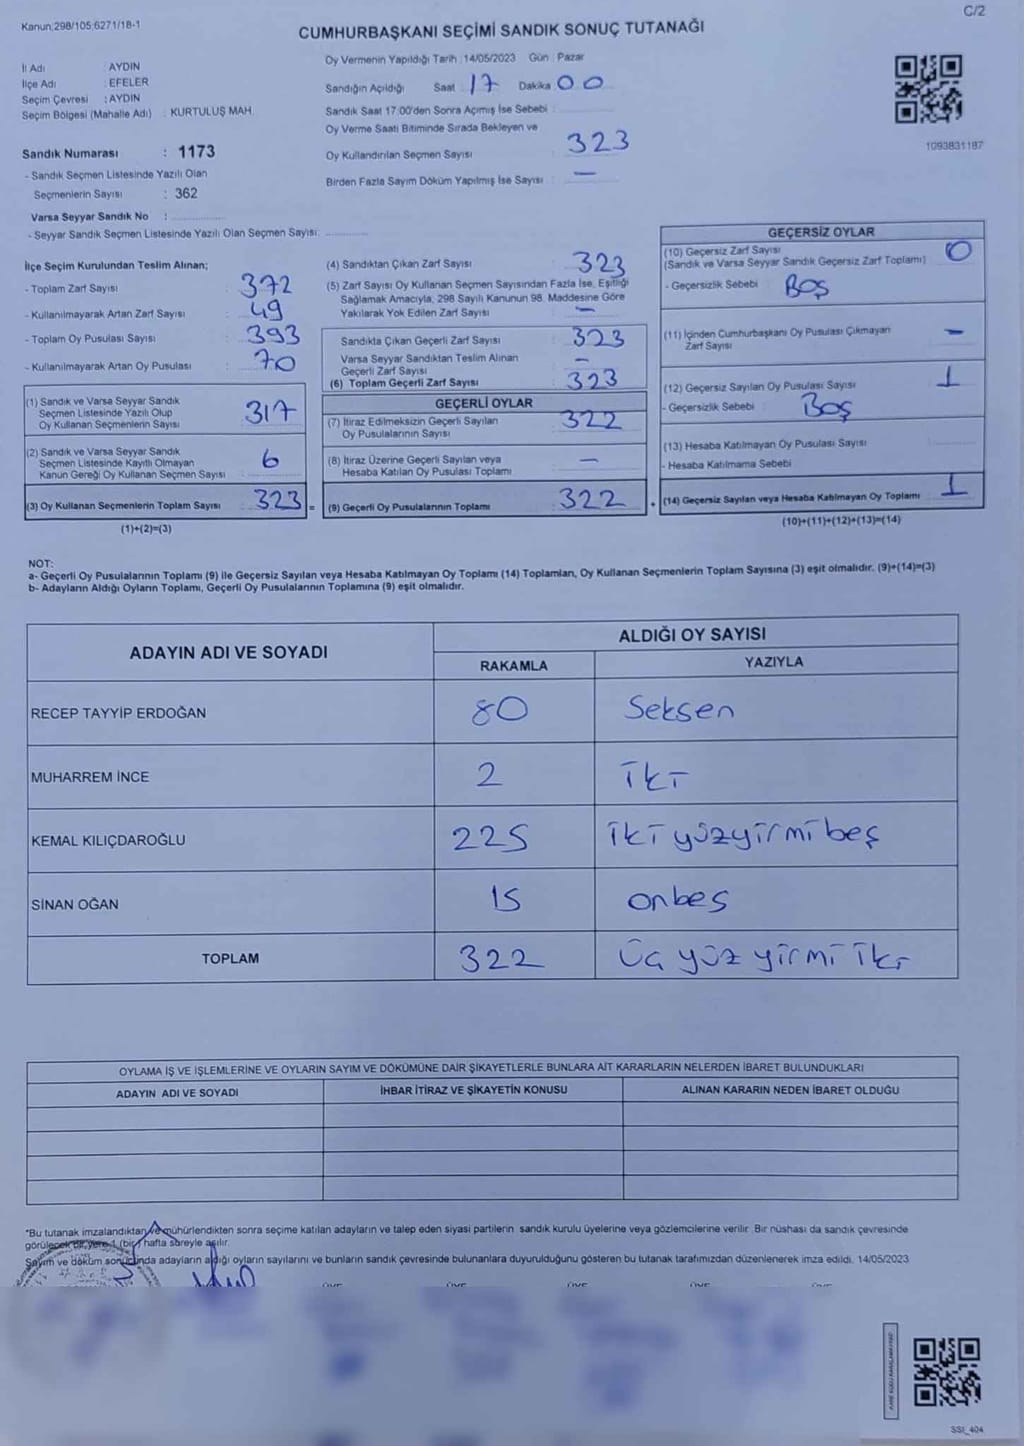 Kanun;298/105;6271/18-1
C/2
CUMHURBAŞKANI SEÇİMİ SANDIK SONUÇ TUTANAĞI
İl Adı : AYDIN
İlçe Adı : EFELER
Seçim Çevresi : AYDIN
Seçim Bölgesi (Mahalle Adı) : KURTULUŞ MAH.
Sandık Numarası : 1173
- Sandık Seçmen Listesinde Yazılı Olan
Seçmenlerin Sayısı : 362
Varsa Seyyar Sandık No :
- Seyyar Sandık Seçmen Listesinde Yazılı Olan Seçmen Sayısı:
Oy Vermenin Yapıldığı Tarih :14/05/2023 Gün : Pazar
Sandığın Açıldığı Saat : 17 Dakika : 00
Sandık Saat 17:00'den Sonra Açımış İse Sebebi :
Oy Verme Saati Bitiminde Sırada Bekleyen ve
Oy Kullandırılan Seçmen Sayısı : 323
Birden Fazla Sayım Döküm Yapılmış İse Sayısı : —
1093831187
İlçe Seçim Kurulundan Teslim Alınan;
- Toplam Zarf Sayısı : 372
- Kullanılmayarak Artan Zarf Sayısı : 49
- Toplam Oy Pusulası Sayısı : 393
- Kullanılmayarak Artan Oy Pusulası : 70
(1) Sandık ve Varsa Seyyar Sandık
Seçmen Listesinde Yazılı Olup
Oy Kullanan Seçmenlerin Sayısı : 317
(2) Sandık ve Varsa Seyyar Sandık
Seçmen Listesinde Kayıtlı Olmayan
Kanun Gereği Oy Kullanan Seçmen Sayısı : 6
(3) Oy Kullanan Seçmenlerin Toplam Sayısı : 323 =
(1)+(2)=(3)
(4) Sandıktan Çıkan Zarf Sayısı : 323
(5) Zarf Sayısı Oy Kullanan Seçmen Sayısından Fazla İse, Eşitliği
Sağlamak Amacıyla, 298 Sayılı Kanunun 98. Maddesine Göre
Yakılarak Yok Edilen Zarf Sayısı : —
Sandıkta Çıkan Geçerli Zarf Sayısı : 323
Varsa Seyyar Sandıktan Teslim Alınan
Geçerli Zarf Sayısı : —
(6) Toplam Geçerli Zarf Sayısı : 323
GEÇERLİ OYLAR
(7) İtiraz Edilmeksizin Geçerli Sayılan
Oy Pusulalarının Sayısı : 322
(8) İtiraz Üzerine Geçerli Sayılan veya
Hesaba Katılan Oy Pusulası Toplamı : —
(9) Geçerli Oy Pusulalarının Toplamı : 322 +
GEÇERSİZ OYLAR
(10) Geçersiz Zarf Sayısı : 0
(Sandık ve Varsa Seyyar Sandık Geçersiz Zarf Toplamı)
- Geçersizlik Sebebi : Boş
(11) İçinden Cumhurbaşkanı Oy Pusulası Çıkmayan
Zarf Sayısı : —
(12) Geçersiz Sayılan Oy Pusulası Sayısı : 1
- Geçersizlik Sebebi : Boş
(13) Hesaba Katılmayan Oy Pusulası Sayısı :
- Hesaba Katılmama Sebebi :
(14) Geçersiz Sayılan veya Hesaba Katılmayan Oy Toplamı : 1
(10)+(11)+(12)+(13)=(14)
NOT:
a- Geçerli Oy Pusulalarının Toplamı (9) ile Geçersiz Sayılan veya Hesaba Katılmayan Oy Toplamı (14) Toplamları, Oy Kullanan Seçmenlerin Toplam Sayısına (3) eşit olmalıdır. (9)+(14)=(3)
b- Adayların Aldığı Oyların Toplamı, Geçerli Oy Pusulalarının Toplamına (9) eşit olmalıdır.
ADAYIN ADI VE SOYADI
ALDIĞI OY SAYISI
RAKAMLA YAZIYLA
RECEP TAYYİP ERDOĞAN 80 Seksen
MUHARREM İNCE 2 İki
KEMAL KILIÇDAROĞLU 225 İki yüzyirmi beş
SİNAN OĞAN 15 onbeş
TOPLAM 322 Üç yüz yirmi iki
OYLAMA İŞ VE İŞLEMLERİNE VE OYLARIN SAYIM VE DÖKÜMÜNE DAİR ŞİKAYETLERLE BUNLARA AİT KARARLARIN NELERDEN İBARET BULUNDUKLARI
ADAYIN ADI VE SOYADI İHBAR İTİRAZ VE ŞİKAYETİN KONUSU ALINAN KARARIN NEDEN İBARET OLDUĞU
*Bu tutanak imzalandıktan ve mühürlendikten sonra seçime katılan adayların ve talep eden siyasi partilerin sandık kurulu üyelerine veya gözlemcilerine verilir. Bir nüshası da sandık çevresinde
görülecek bir yere 1 (bir) hafta süreyle asılır.
Sayım ve döküm sonucunda adayların aldığı oyların sayılarını ve bunların sandık çevresinde bulunanlara duyurulduğunu gösteren bu tutanak tarafımızdan düzenlenerek imza edildi. 14/05/2023
ÜYE ÜYE ÜYE ÜYE ÜYE
SSI_404